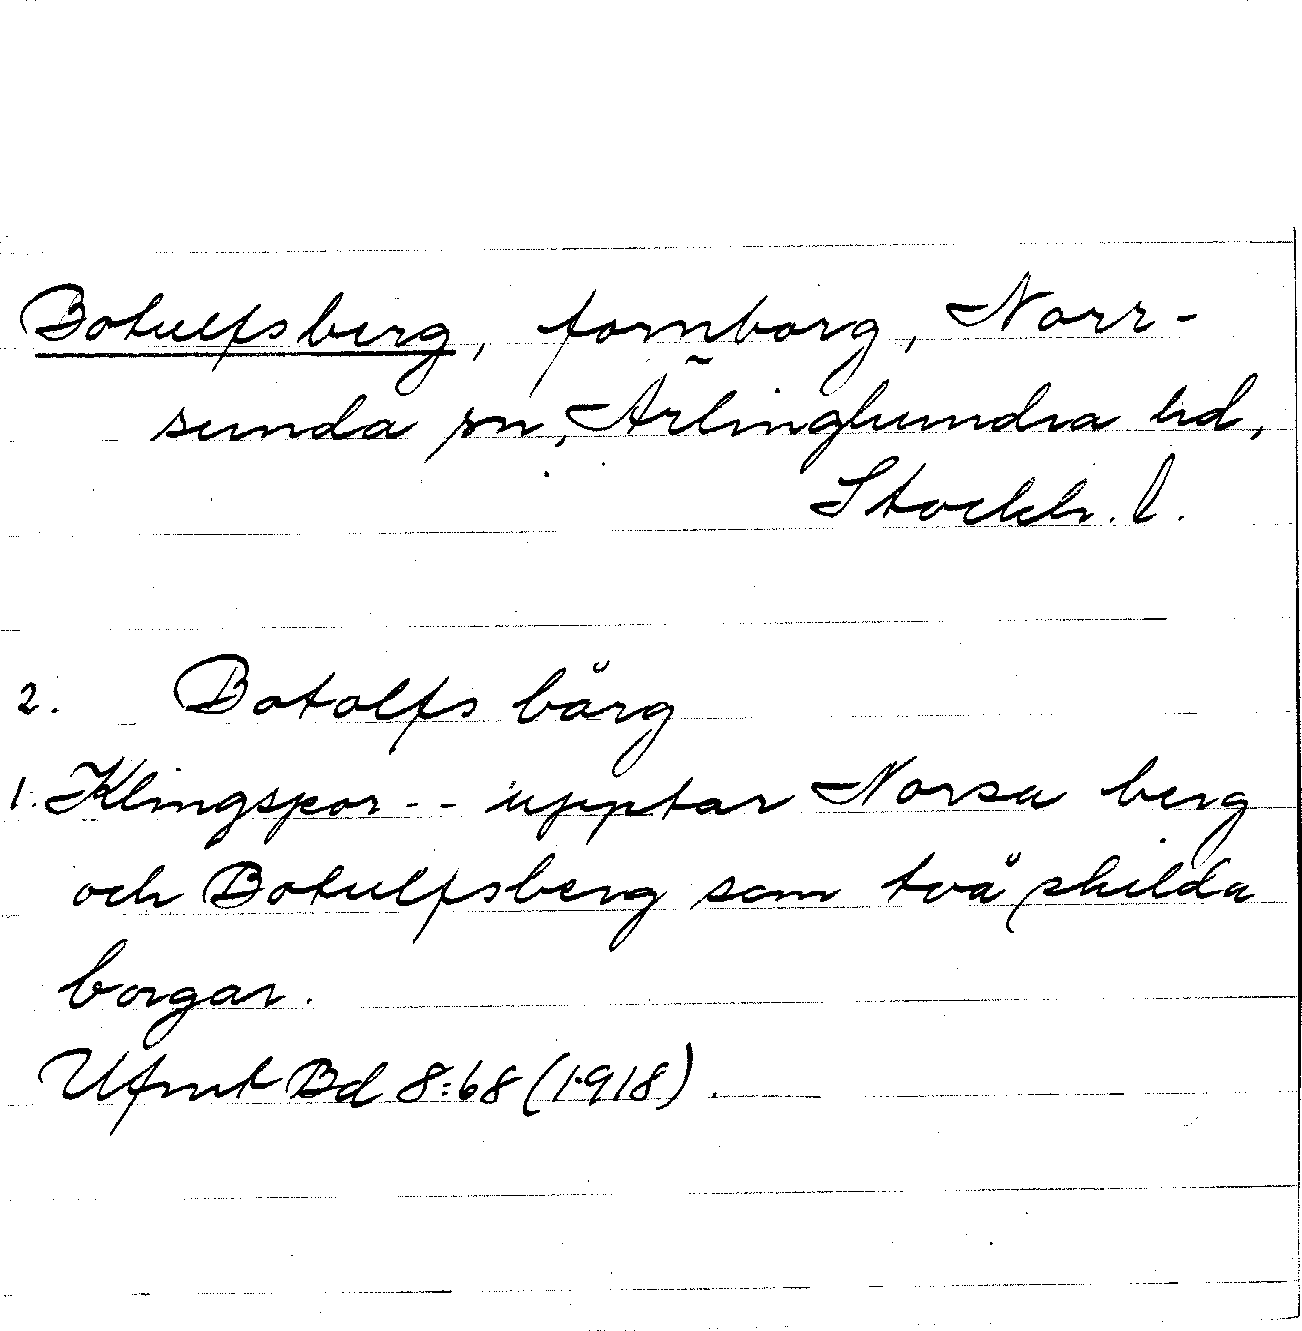 Botulfsberg, fornborg, Norr-
sunda sn, Ärlinghundra hd,
Stockh. l.
2. Botolfs bärg
1. Klingspor - - upptar Norsa berg
och Botulfsberg som två skilda
borgar.
Ufmt Bd 8:68 (1918).